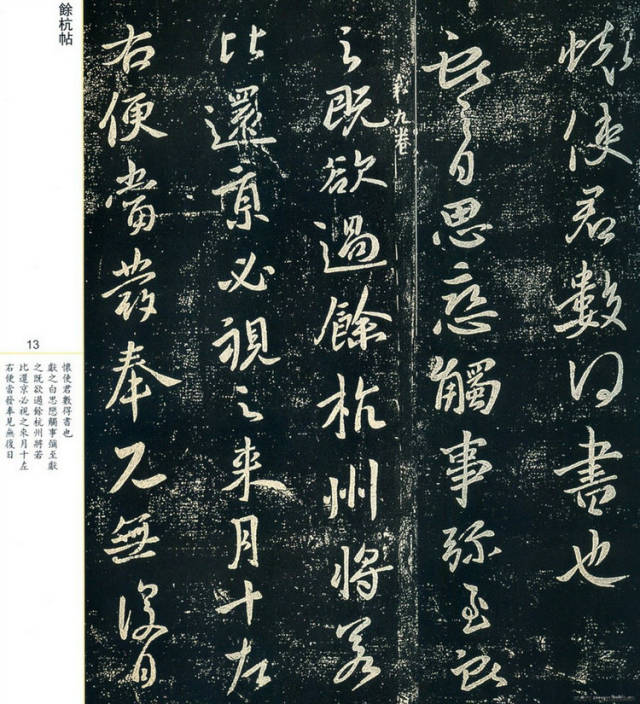 餘杭帖
懐使君數得書也
獻之白思戀觸事彌至獻
第九卷
之既欲過餘杭州將若
比還京必視之来月十左
右便當發奉見無復日
13
懐使君數得書也
獻之白思戀觸事彌至獻
之既欲過餘杭州將若
比還京必視之來月十左
右便當發奉見無復日